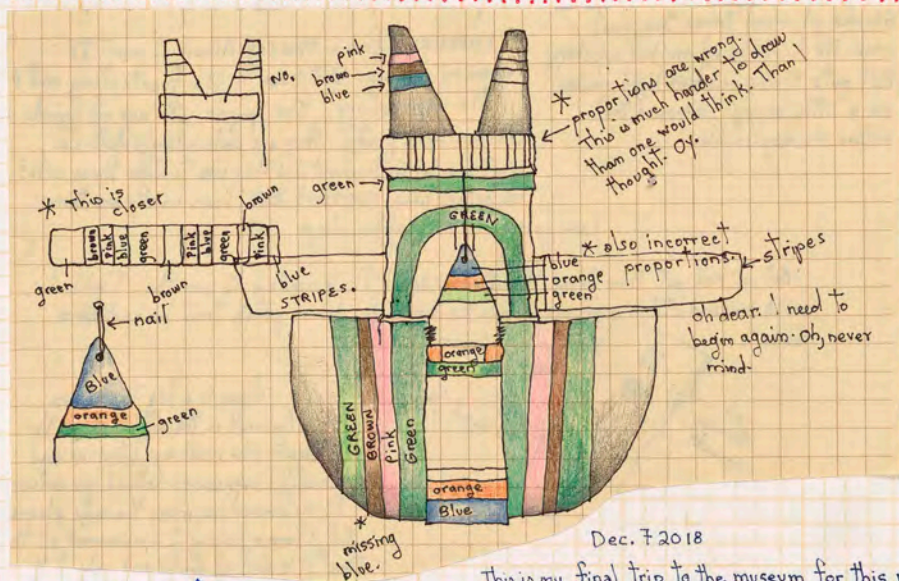 NO.
pink
brown
blue
*
proportions are wrong.
This is much harder to draw
than one would think. Than I
thought. Oy.
green
GREEN
* This is
closer
brown
brown
pink
blue
green
pink
blue
green
pink
green
brown
blue
STRIPES.
blue
orange
green
* also incorrect
proportions.
stripes
oh dear. I need to
begin again. Oh, never
mind.
nail
Blue
orange
green
orange
green
GREEN
BROWN
Pink
Green
orange
Blue
*
missing
blue.
Dec. 7 2018
This is my final trip to the museum for this